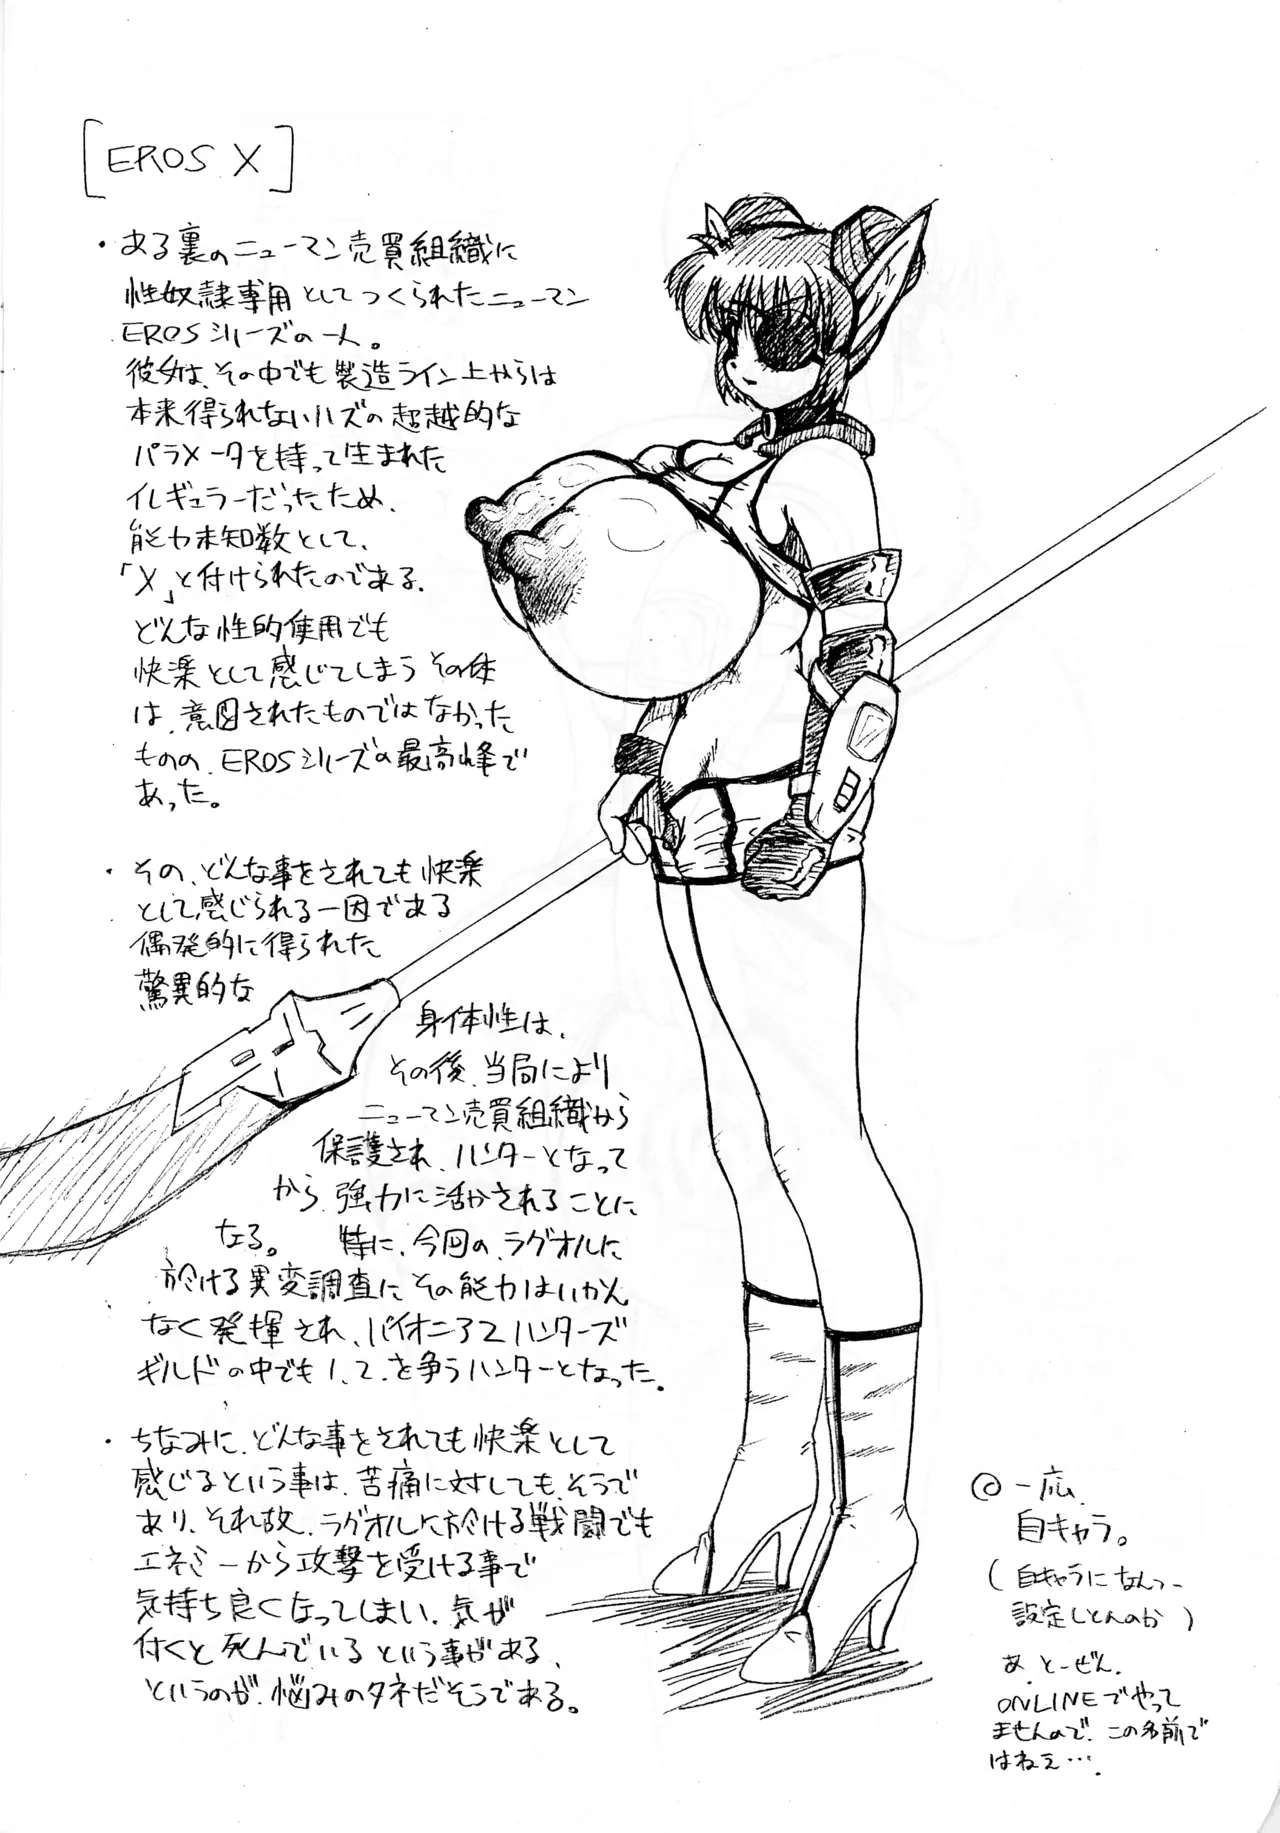 [EROS X]
・ある裏のニューマン売買組織に
性奴隷専用としてつくられたニューマン
EROSシリーズの一人。
彼女は、その中でも製造ライン上からは
本来得られないハズの超越的な
パラメータを持って生まれた
イレギュラーだったため、
能力未知数として、
「X」と付けられたのである。
どんな性的使用でも
快楽として感じてしまうその体
は、意図されたものではなかった
ものの、EROSシリーズの最高峰で
あった。
・その、どんな事をされても快楽
として感じられる一因である
偶発的に得られた
驚異的な
身体性は、
その後、当局により
ニューマン売買組織から
保護され、ハンターとなって
から、強力に活かされることに
なる。特に、今回の、ラグオルに
於ける異変調査にその能力はいかん
なく発揮され、パイオニア2ハンターズ
ギルドの中でも1、2を争うハンターとなった。
・ちなみに、どんな事をされても快楽として
感じるという事は、苦痛に対しても、そうで
あり、それ故、ラグオルに於ける戦闘でも
エネミーから攻撃を受ける事で
気持ち良くなってしまい、気が
付くと死んでいるという事がある、
というのが、悩みのタネだそうである。
◎一応、
自キャラ。
(自キャラになんつー
設定しとんのか)
あ、とーぜん、
ONLINEでやって
ませんので、この名前で
はねぇ…。